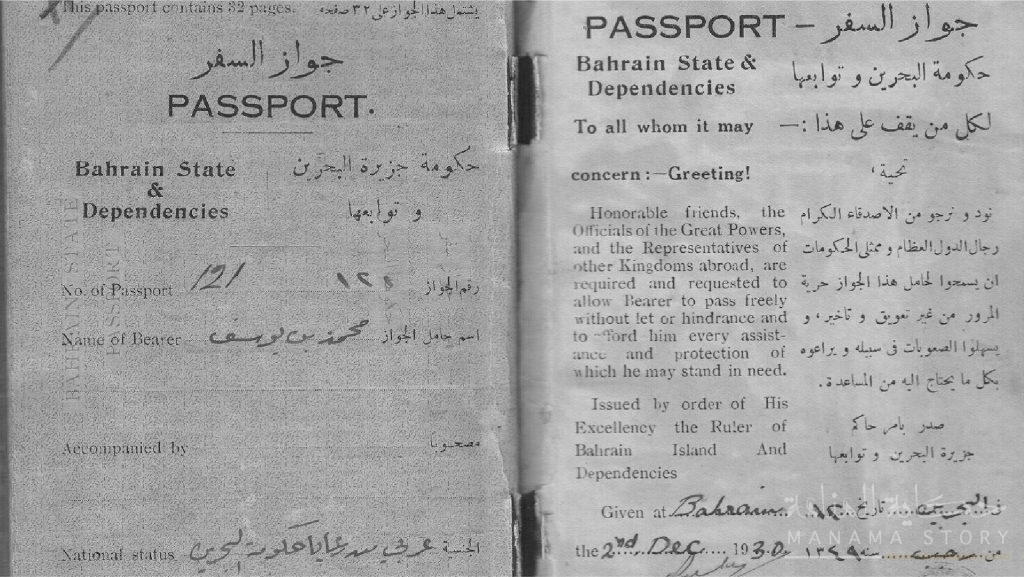 This passport contains 32 pages. يشتمل هذا الجواز على ٣٢ صفحه
جواز السفر
PASSPORT.
Bahrain State حكومة جزيرة البحرين
&
Dependencies و توابعها
No. of Passport 121 ١٢١ رقم الجواز
Name of Bearer محمد بن يوسف اسم حامل الجواز
Accompanied by مصحوبا
National status عربي من رعايا حكومة البحرين الجنسية
BAHRAIN STATE
PASSPORT
PASSPORT – جواز السفر
Bahrain State & حكومة البحرين و توابعها
Dependencies
To all whom it may لكل من يقف على هذا :—
concern :—Greeting! تحية ،
Honorable friends, the نود و نرجو من الاصدقاء الكرام
Officials of the Great Powers, رجال الدول العظام و ممثلى الحكومات
and the Representatives of
other Kingdoms abroad, are ان يسمحوا لحامل هذا الجواز حرية
required and requested to
allow Bearer to pass freely المرور من غير تعويق و تاخير، و
without let or hindrance and
to afford him every assist- يسهلوا الصعوبات فى سبيله و يراعوه
ance and protection of
which he may stand in need. بكل ما يحتاج اليه من المساعدة .
Issued by order of His
Excellency the Ruler of صدر بامر حاكم
Bahrain Island And جزيرة البحرين و توابعها
Dependencies
Given at Bahrain تاريخ البحرين فى
the 2nd Dec 1930 ١٣٤٩ سنه رجب من
حكاية المنامة
MANAMA STORY